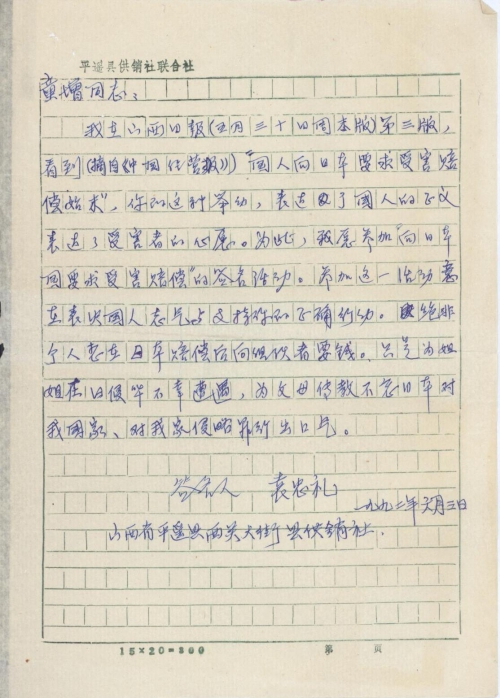 平遥县供销社联合社
童增同志：
我在山西日报(五月三十日周末版)第三版，
看到(摘自《中国作营报》)"国人向日本要求受害赔
偿始末"，你的这种举动，表达了国人的正义
表达了受害者的心愿。为此，我愿参加"向日本
国要求受害赔偿"的签名活动。参加这一活动意
在表达国人志气与支持你的正确行动。绝非
个人意在日本赔偿后向组织者要钱。只是为姐
姐在日侵华不幸遭遇，为父母传教不忘日本对
我国家、对我家侵略罪行出口气。
签名人 袁忠礼
一九九二年六月三日
山西省平遥县西关大街县供销社.
15×20=300 第 页